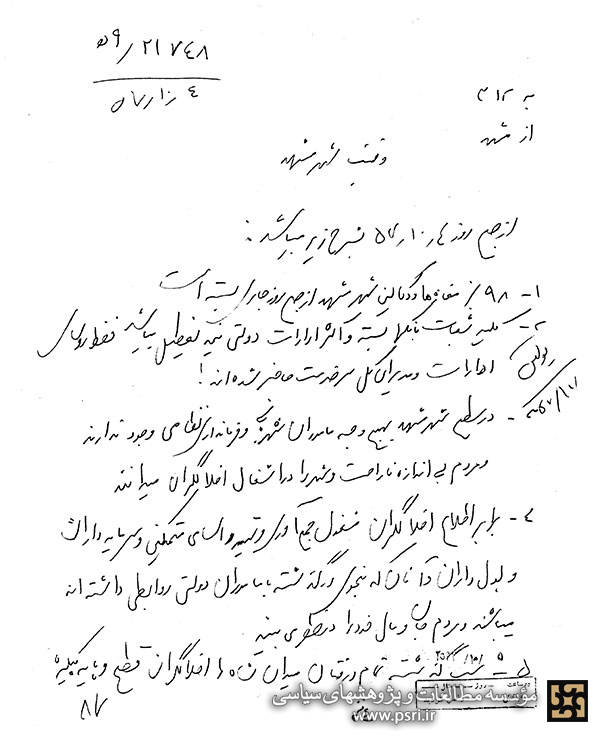 ۵۹ر ۲۱۷۴۸
۴ ر۱۰ر۵۷
به ۳۱۲
از مشهد
وضعیت شهر مشهد
از صبح روز ۴ر۱۰ر۵۷ بشرح زیر میباشد:
۱- ۹۸٪ مغازه‌ها و دکاکین شهر مشهد از صبح روز جاری بسته است
۲- کلیه شعبات بانکها بسته و اکثر ادارات دولتی نیز تعطیل میباشد فقط روسای
ادارات و مدیران کل سر خدمت حاضر شده‌اند!
۳- در سطح شهر مشهد بهیچ وجه ماموران شهربانی و فرمانداری نظامی وجود ندارند
و مردم بی اندازه ناراحت و شهر را در اشغال اخلالگران میدانند
۴- برابر اطلاع اخلالگران مشغول جمع آوری و تهیه اسامی متمکنین و سرمایه داران
و پولداران و آنان که بنحوی در گذشته با ماموران دولتی روابطی داشته اند
میباشند و مردم جان و مال خود را در خطر می بینند
۵- شب گذشته تمام درختان میدان شاه را اخلالگران قطع و پایه کلیه
۸۷
مؤسسه مطالعات و پژوهشهای سیاسی
www.psri.ir